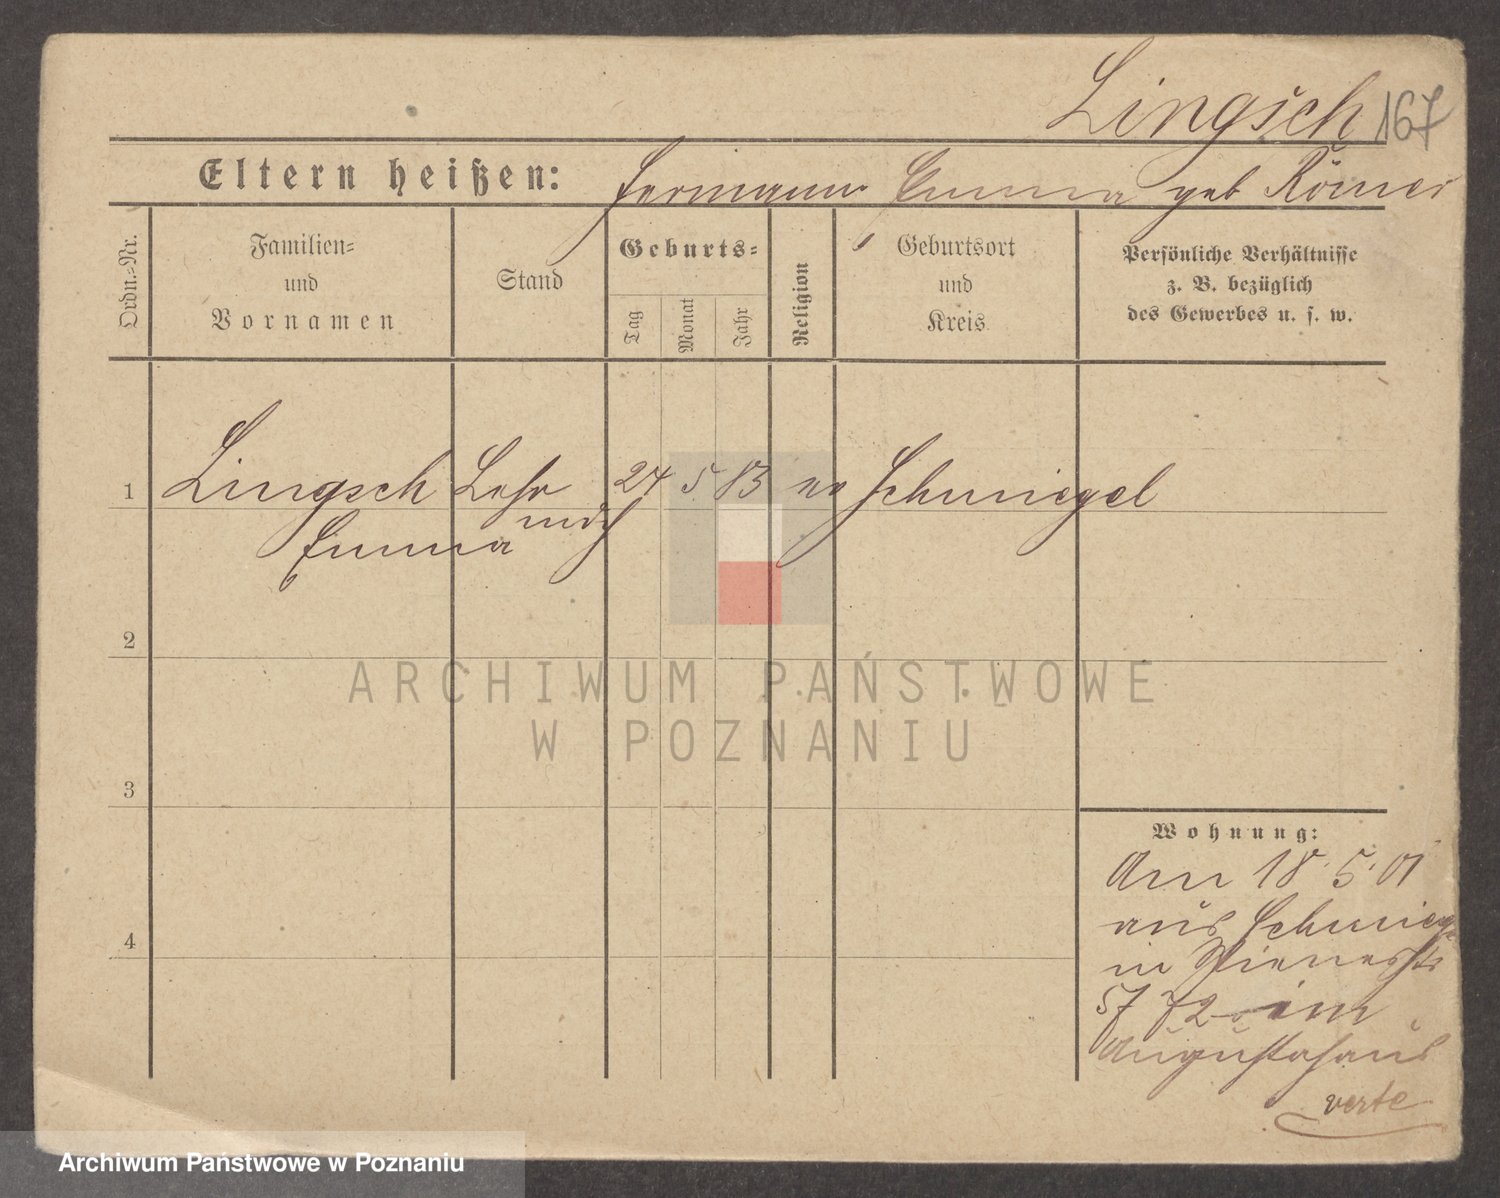 Lingsch 167
Eltern heißen: Hermann Emma geb Römer
Ordn.-Nr.
Familien- und Vornamen
Stand
Geburts-
Tag
Monat
Jahr
Religion
Geburtsort und Kreis
Persönliche Verhältnisse
z. B. bezüglich
des Gewerbes u. s. w.
1 Lingsch Lehr 24 5 83 ev Schmiegel
Emma mdch
2
ARCHIWUM PAŃSTWOWE
W POZNANIU
3
Wohnung:
Am 18.5.01
aus Schmiegel
in
4
57 72 im
Augustahaus
verte
Archiwum Państwowe w Poznaniu